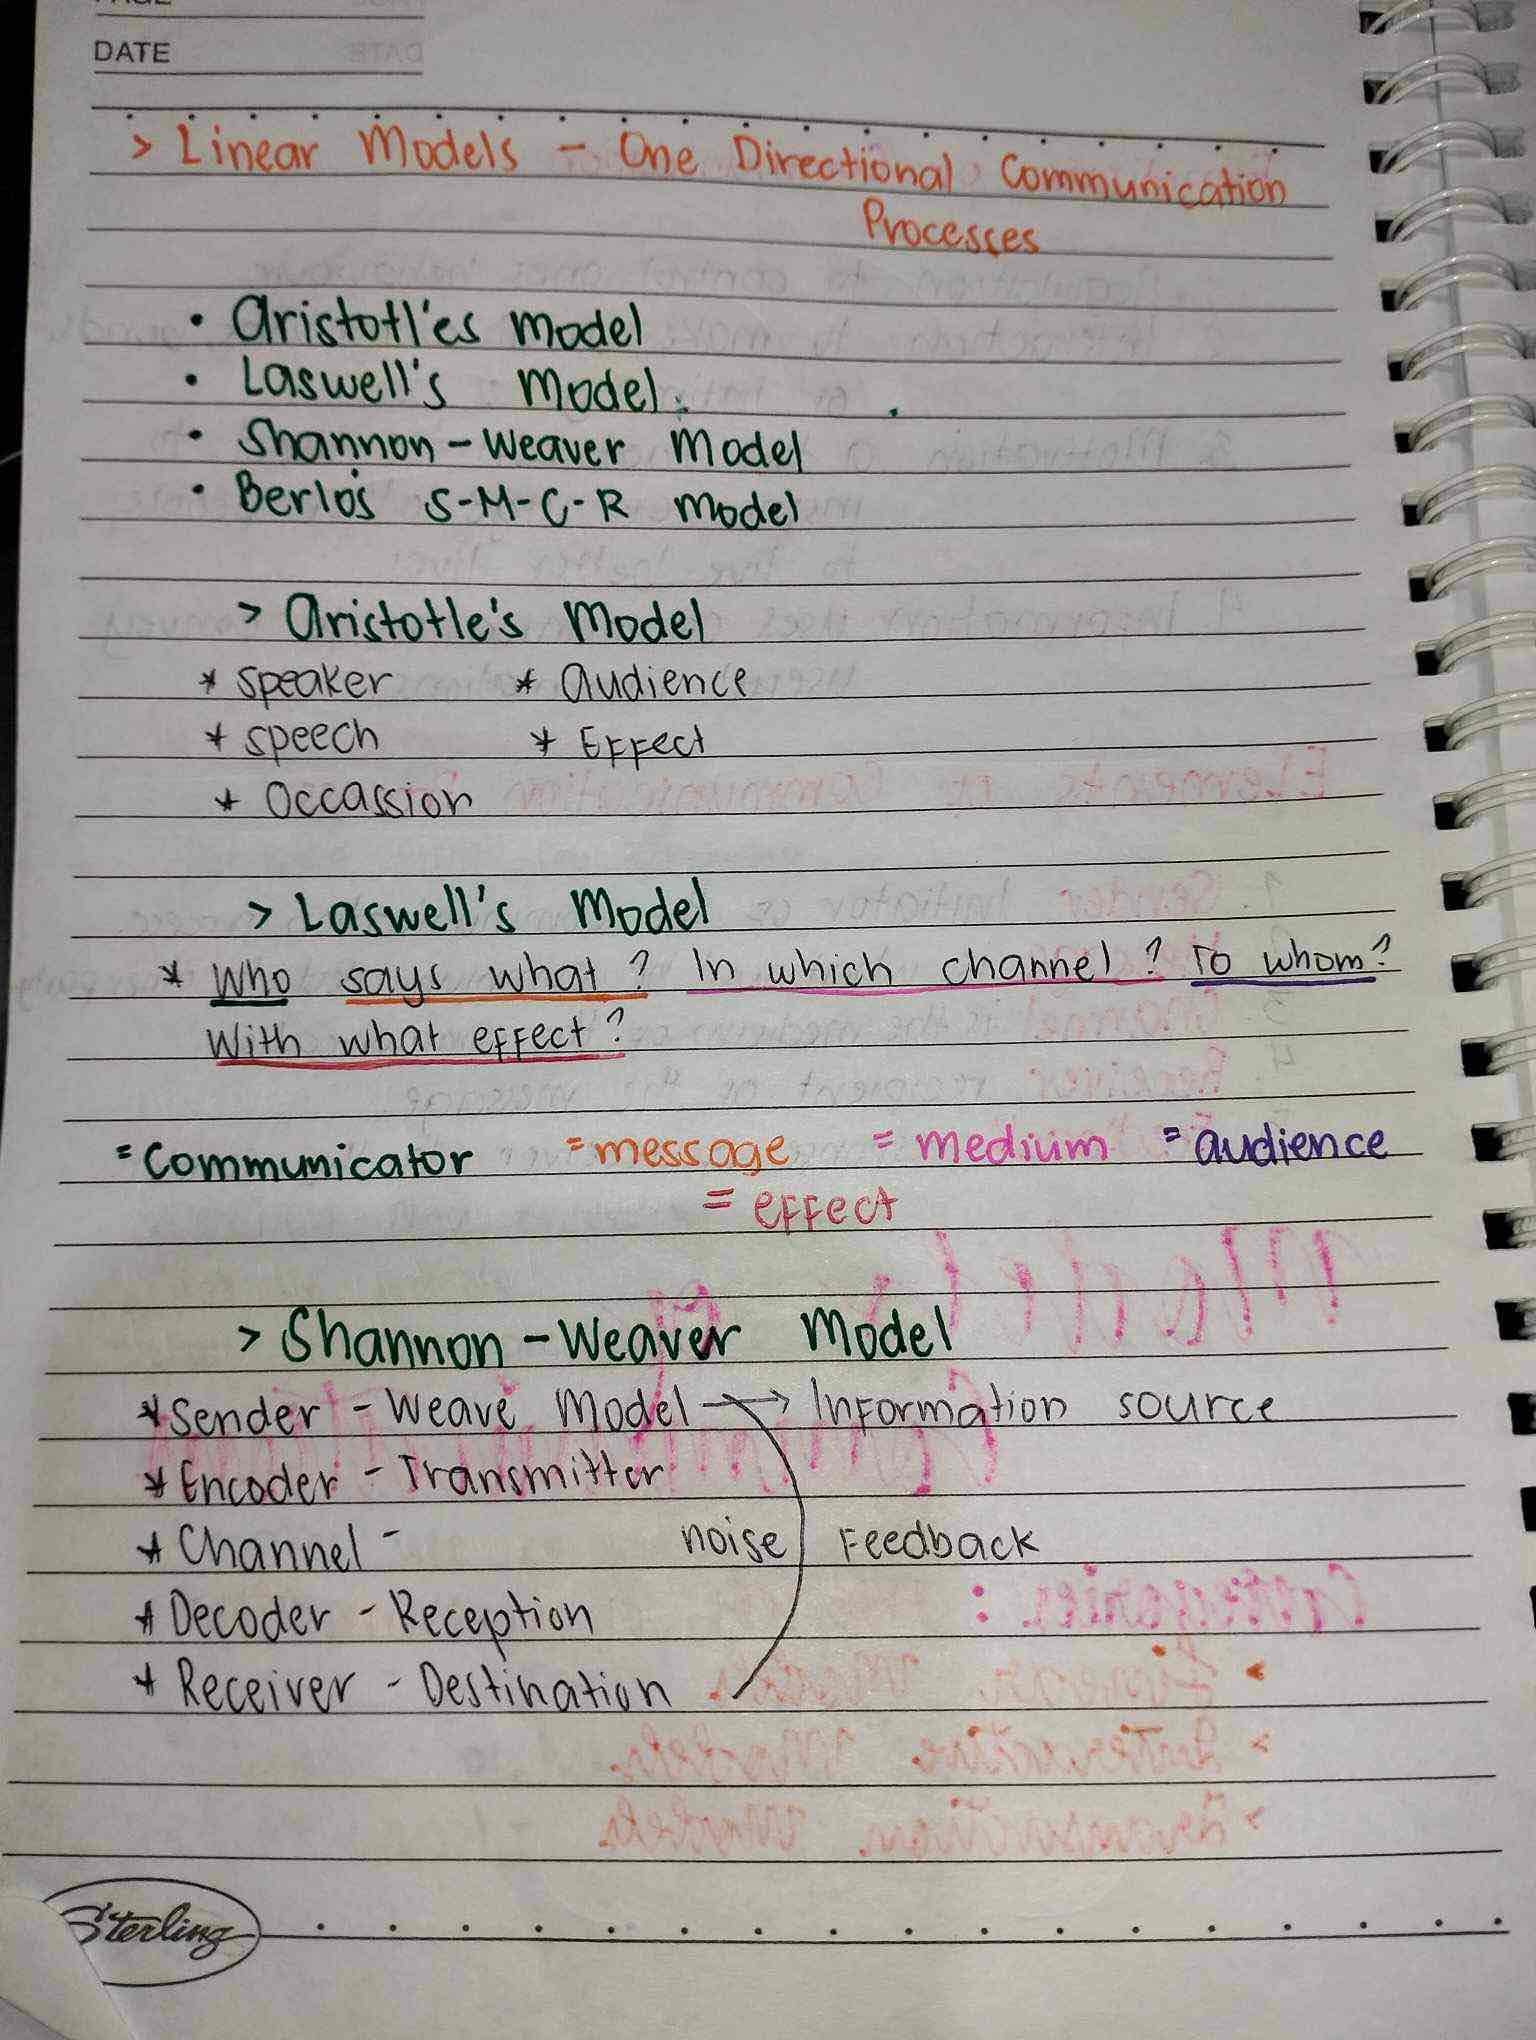 DATE
> Linear Models - One Directional Communication
Processes
• Aristotl'es Model
• Laswell's Model.
• Shannon-Weaver Model
• Berlo's S-M-C-R Model
> Aristotle's Model
* Speaker * Audience
* Speech * Effect
* Occassion
> Laswell's Model
* Who says what? In which channel? To whom?
With what effect?
= Communicator = message = medium = audience
= effect
> Shannon-Weaver Model
* Sender - Weave Model → Information source
* Encoder - Transmitter
* Channel - noise Feedback
* Decoder - Reception
* Receiver - Destination
Sterling